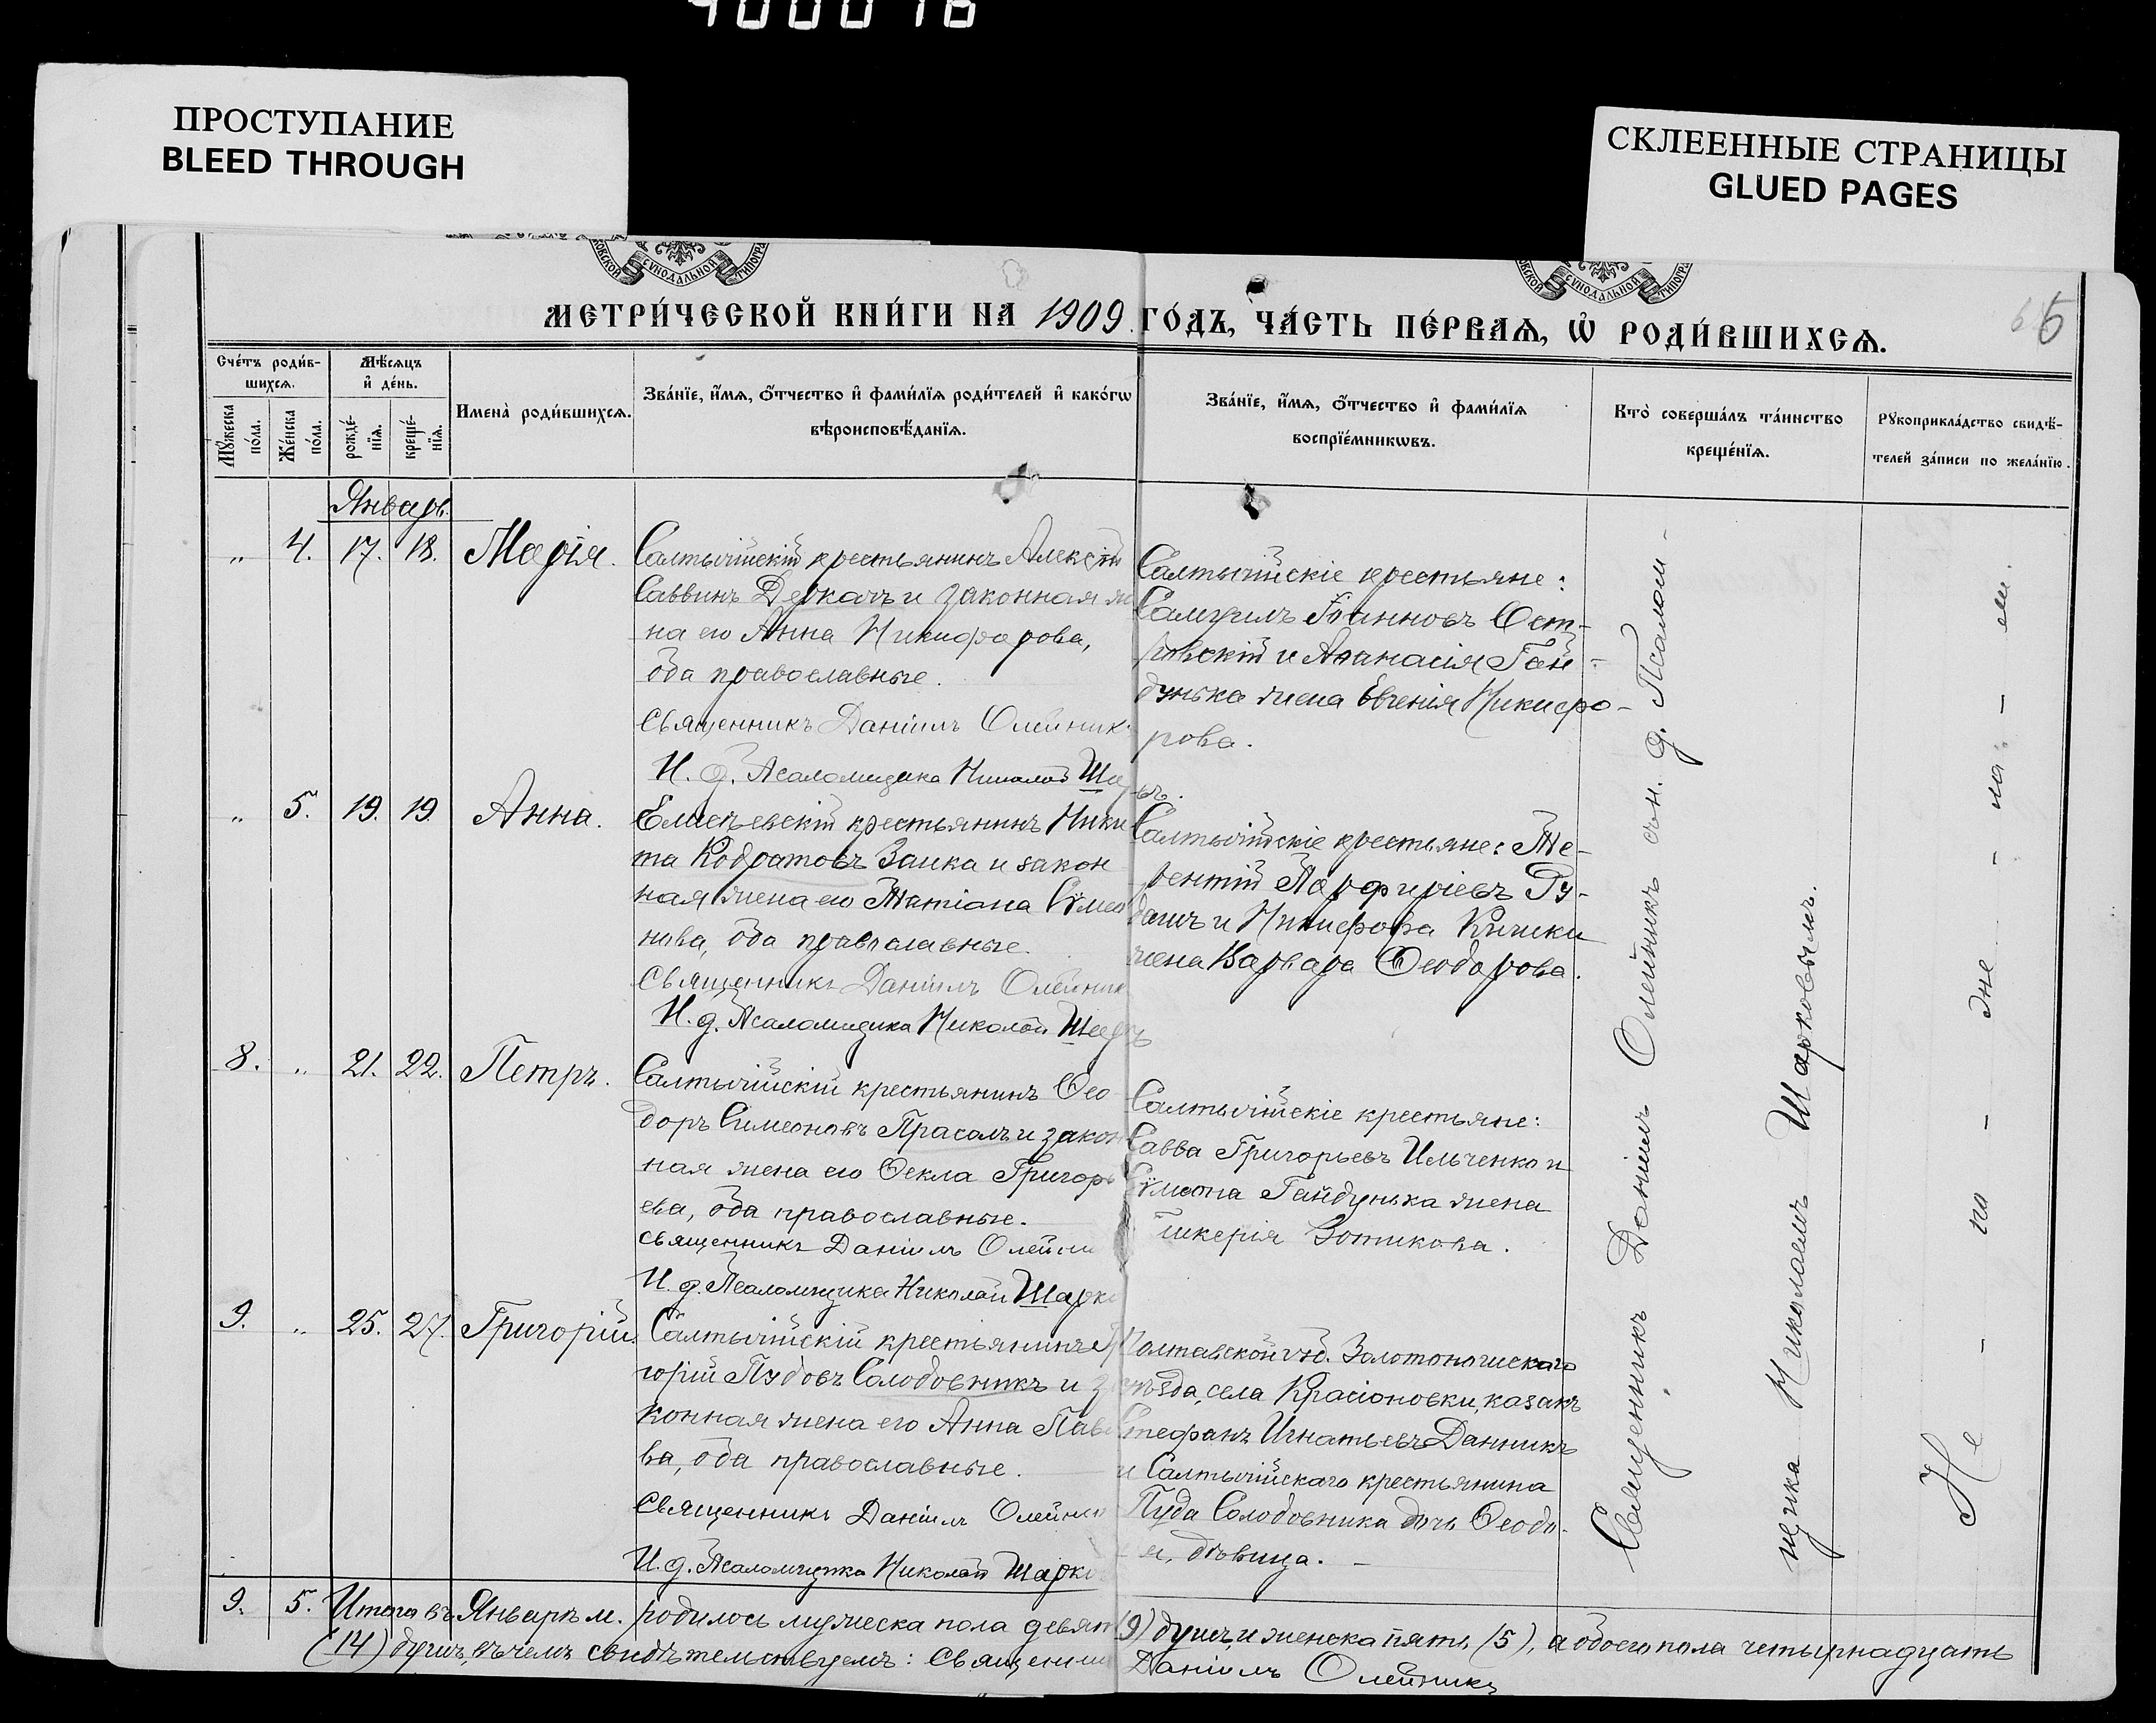 400016
ПРОСТУПАНИЕ
BLEED THROUGH
СКЛЕЕННЫЕ СТРАНИЦЫ
GLUED PAGES
СѴНОДАЛЬНОЙ
СѴНОДАЛЬНОЙ
МЕТРИ́ЧЕСКОЙ КНИ́ГИ НА 1909 ГО́ДЪ, ЧА́СТЬ ПЕ́РВАѦ, Ѡ҆ РОДИ́ВШИХСѦ.
6
Сче́тъ роди́в-
шихсѧ.
Мѣ́сяцъ
и҆ де́нь.
Мꙋ́жеска по́ла.
Же́нска по́ла.
рожде́-нїѧ.
креще́-нїѧ.
Имена̀ роди́вшихсѧ.
Зва́нїе, и҆́мѧ, ѻ҆́тчество и҆ фами́лїѧ роди́телей и҆ како́гѡ
вѣроисповѣ́данїѧ.
Зва́нїе, и҆́мѧ, ѻ҆́тчество и҆ фами́лїѧ
воспрїе́мникѡвъ.
Кто̀ соверша́лъ та́инство
креще́нїѧ.
Рꙋкоприкла́дство свидѣ́-
телей за́писи по жела́нїю.
Январь.
„ 4. 17. 18. Марія.
Салтычійскій крестьянинъ Алексѣй
Саввинъ Деркачъ и законная же
на его Анна Никифорова,
оба православные.
Священникъ Даніилъ Олейник
И. д. Псаломщика Николай Шар
Салтычійскіе крестьяне:
Самуилъ Іоанновъ Ост-
ровскій и Аѳанасія Гай-
дунька жена Евгенія Никифо-
рова.
„ 5. 19. 19. Анна.
Елисѣевскій крестьянинъ Ники
та Кодратовъ Заика и закон
ная жена его Татіана Сѵмео
нова, оба православные.
Священникъ Даніилъ Олейник
И. д. Псаломщика Николай Шар
Салтычійскіе крестьяне: Те-
рентій Порфиріевъ Ру-
дашъ и Никифора Кички
жена Варвара Ѳеодорова.
8. „ 21. 22. Петръ.
Салтычійскій крестьянинъ Ѳео
доръ Симеоновъ Прасолъ и закон
ная жена его Ѳекла Григорь
ева, оба православные.
Священникъ Даніилъ Олейни
И. д. Псаломщика Николай Шарко
Салтычійскіе крестьяне:
Савва Григорьевъ Ильченко и
Сѵмеона Гайдунька жена
икерія Зотикова.
9. „ 25. 27. Григорій.
Салтычійскій крестьянинъ Гри
горій Пудовъ Солодовникъ и за
конная жена его Анна Павло
ва, оба православные.
Священникъ Даніилъ Олейник
И. д. Псаломщика Николай Шарко
Полтавской губ. Золотоношскаго
уѣзда, села Красіоновки, казакъ
Стефанъ Игнатьевъ Данникъ
и Салтычійскаго крестьянина
Пуда Солодовника дочь Ѳеодо-
ія, дѣвица.
Священникъ Даніилъ Олейникъ съ и. д. Псалом-
щика Николаемъ Шарковымъ.
Не - по - дне - ла - ли.
9. 5. Итого въ Январѣ м. родилось мужеска пола девят (9) душъ и женска пять (5), а обоего пола четырнадцать
(14) душъ, въ чемъ свидѣтельствуемъ: Священник Даніилъ Олейникъ